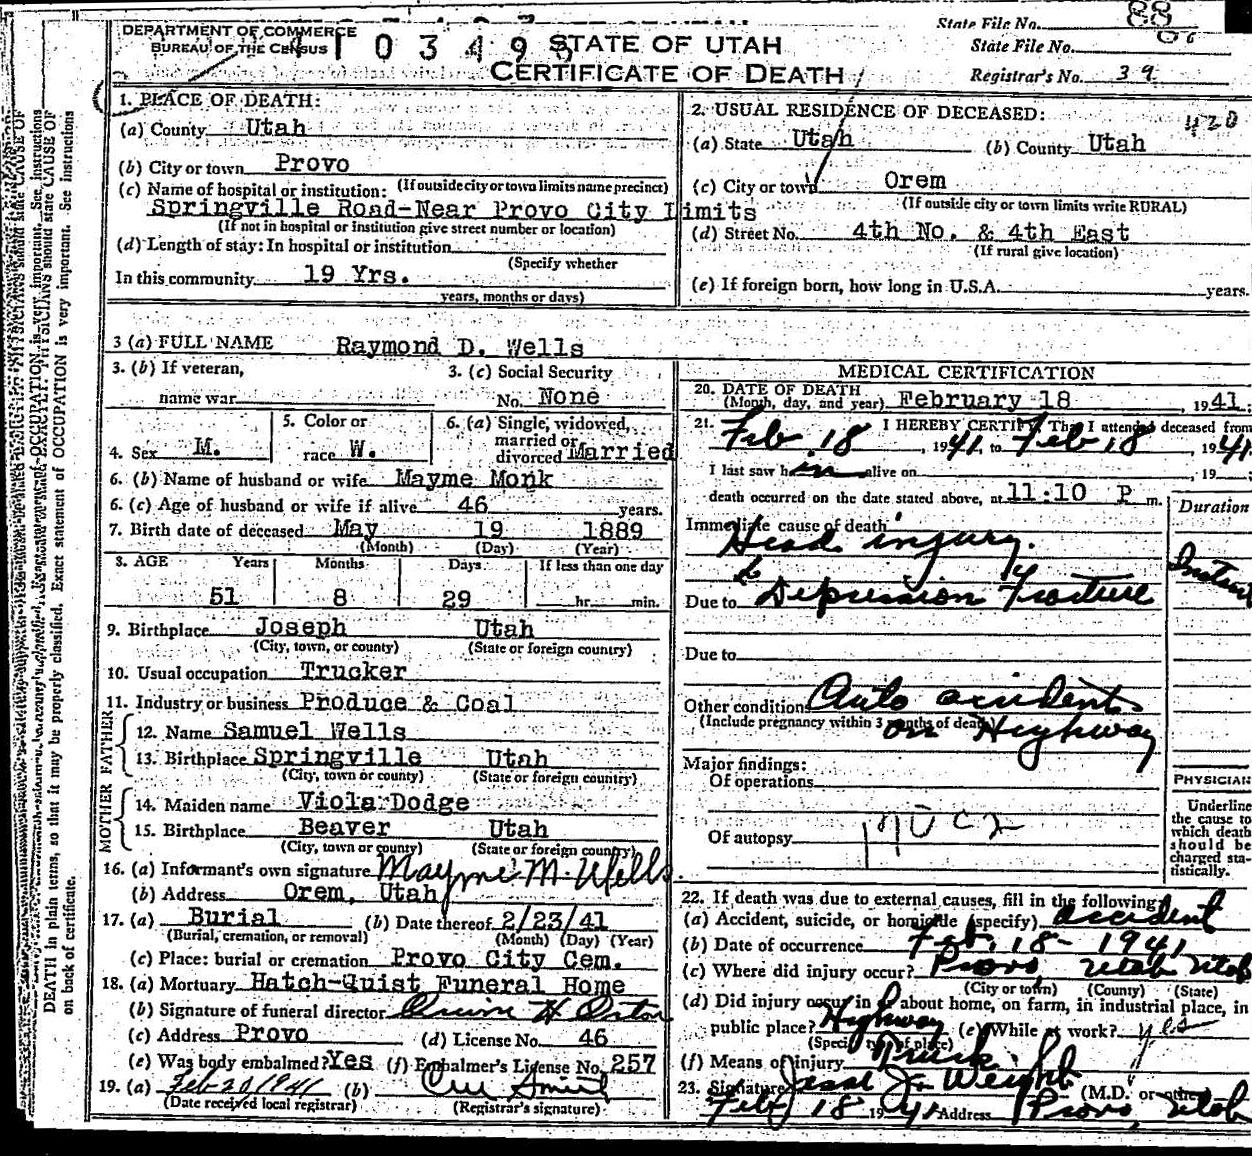 DEPARTMENT OF COMMERCE
BUREAU OF THE CENSUS
STATE OF UTAH
CERTIFICATE OF DEATH
State File No. 88
State File No.
Registrar's No. 39
1. PLACE OF DEATH:
(a) County Utah
(b) City or town Provo
(If outside city or town limits name precinct)
(c) Name of hospital or institution:
Springville Road-Near Provo City Limits
(If not in hospital or institution give street number or location)
(d) Length of stay: In hospital or institution
(Specify whether
In this community 19 Yrs.
years, months or days)
2. USUAL RESIDENCE OF DECEASED:
420
(a) State Utah (b) County Utah
(c) City or town Orem
(If outside city or town limits write RURAL)
(d) Street No. 4th No. & 4th East
(If rural give location)
(e) If foreign born, how long in U.S.A. years.
3 (a) FULL NAME Raymond D. Wells
3. (b) If veteran,
name war
3. (c) Social Security
No. None
4. Sex M.
5. Color or
race W.
6. (a) Single, widowed,
married or
divorced Married
6. (b) Name of husband or wife Mayme Monk
6. (c) Age of husband or wife if alive 46 years.
7. Birth date of deceased May 19 1889
(Month) (Day) (Year)
8. AGE Years Months Days If less than one day
51 8 29 hr. min.
9. Birthplace Joseph Utah
(City, town, or county) (State or foreign country)
10. Usual occupation Trucker
11. Industry or business Produce & Coal
FATHER
12. Name Samuel Wells
13. Birthplace Springville Utah
(City, town or county) (State or foreign country)
MOTHER
14. Maiden name Viola Dodge
15. Birthplace Beaver Utah
(City, town or county) (State or foreign country)
16. (a) Informant's own signature Mayme M. Wells
(b) Address Orem, Utah
17. (a) Burial (b) Date thereof 2/23/41
(Burial, cremation, or removal) (Month) (Day) (Year)
(c) Place: burial or cremation Provo City Cem.
18. (a) Mortuary Hatch-Quist Funeral Home
(b) Signature of funeral director
(c) Address Provo (d) License No. 46
(e) Was body embalmed? Yes (f) Embalmer's License No. 257
19. (a) Feb 20, 1941 (b)
(Date received local registrar) (Registrar's signature)
MEDICAL CERTIFICATION
20. DATE OF DEATH
(Month, day, and year) February 18, 1941.
21. I HEREBY CERTIFY, That I attended deceased from
Feb 18, 1941, to Feb 18, 1941
I last saw him alive on , 19
death occurred on the date stated above, at 11:10 P m.
Duration
Immediate cause of death
Head injury.
Due to Depression Fracture
Due to
Other condition Auto accident
(Include pregnancy within 3 months of death)
on Highway
Major findings:
Of operations
Of autopsy
PHYSICIAN
Underline
the cause to
which death
should be
charged sta-
tistically.
22. If death was due to external causes, fill in the following:
(a) Accident, suicide, or homicide (specify) accident
(b) Date of occurrence Feb. 18 - 1941
(c) Where did injury occur? Provo, Utah Utah
(City or town) (County) (State)
(d) Did injury occur in or about home, on farm, in industrial place, in
public place? Highway (e) While at work? yes
(Specify type of place)
(f) Means of injury Truck.
23. Signature Weight (M.D. or other)
Feb 18 1941 Address Provo, Utah
DEATH in plain terms, so that it may be properly classified. Exact statement of OCCUPATION is very important. See instructions
on back of certificate.